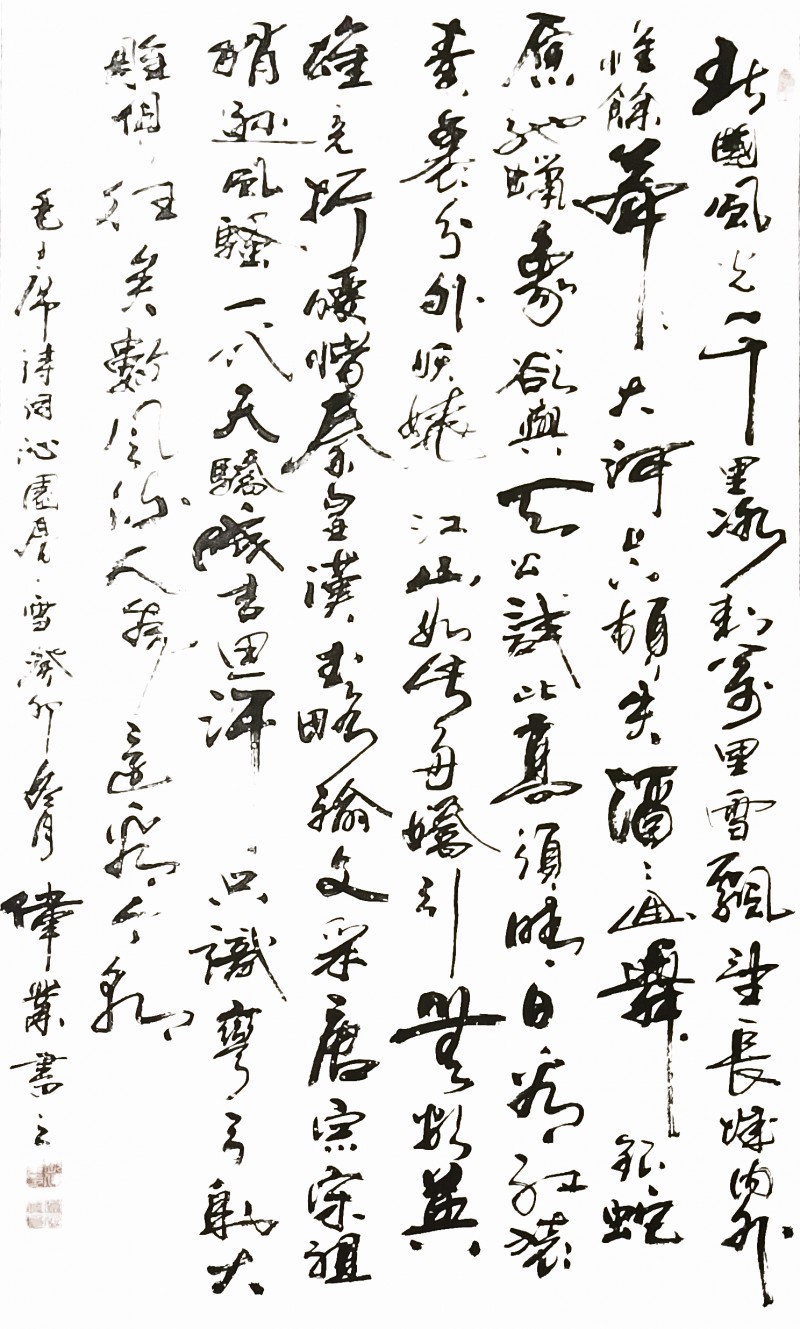 北國風光千里冰封萬里雪飄望長城內外
惟餘莽、大河上下頓失滔〻山舞銀蛇
原馳蠟象欲與天公試比高須晴日看紅裝
素裹分外妖嬈江山如此多嬌引無數英
雄竞折腰惜秦皇漢武略輸文采唐宗宋祖
稍遜風騷一代天驕成吉思汗只識彎弓射大
雕俱往矣數風流人物還看今朝
毛主席詩詞沁園春雪癸卯冬月偉業書之